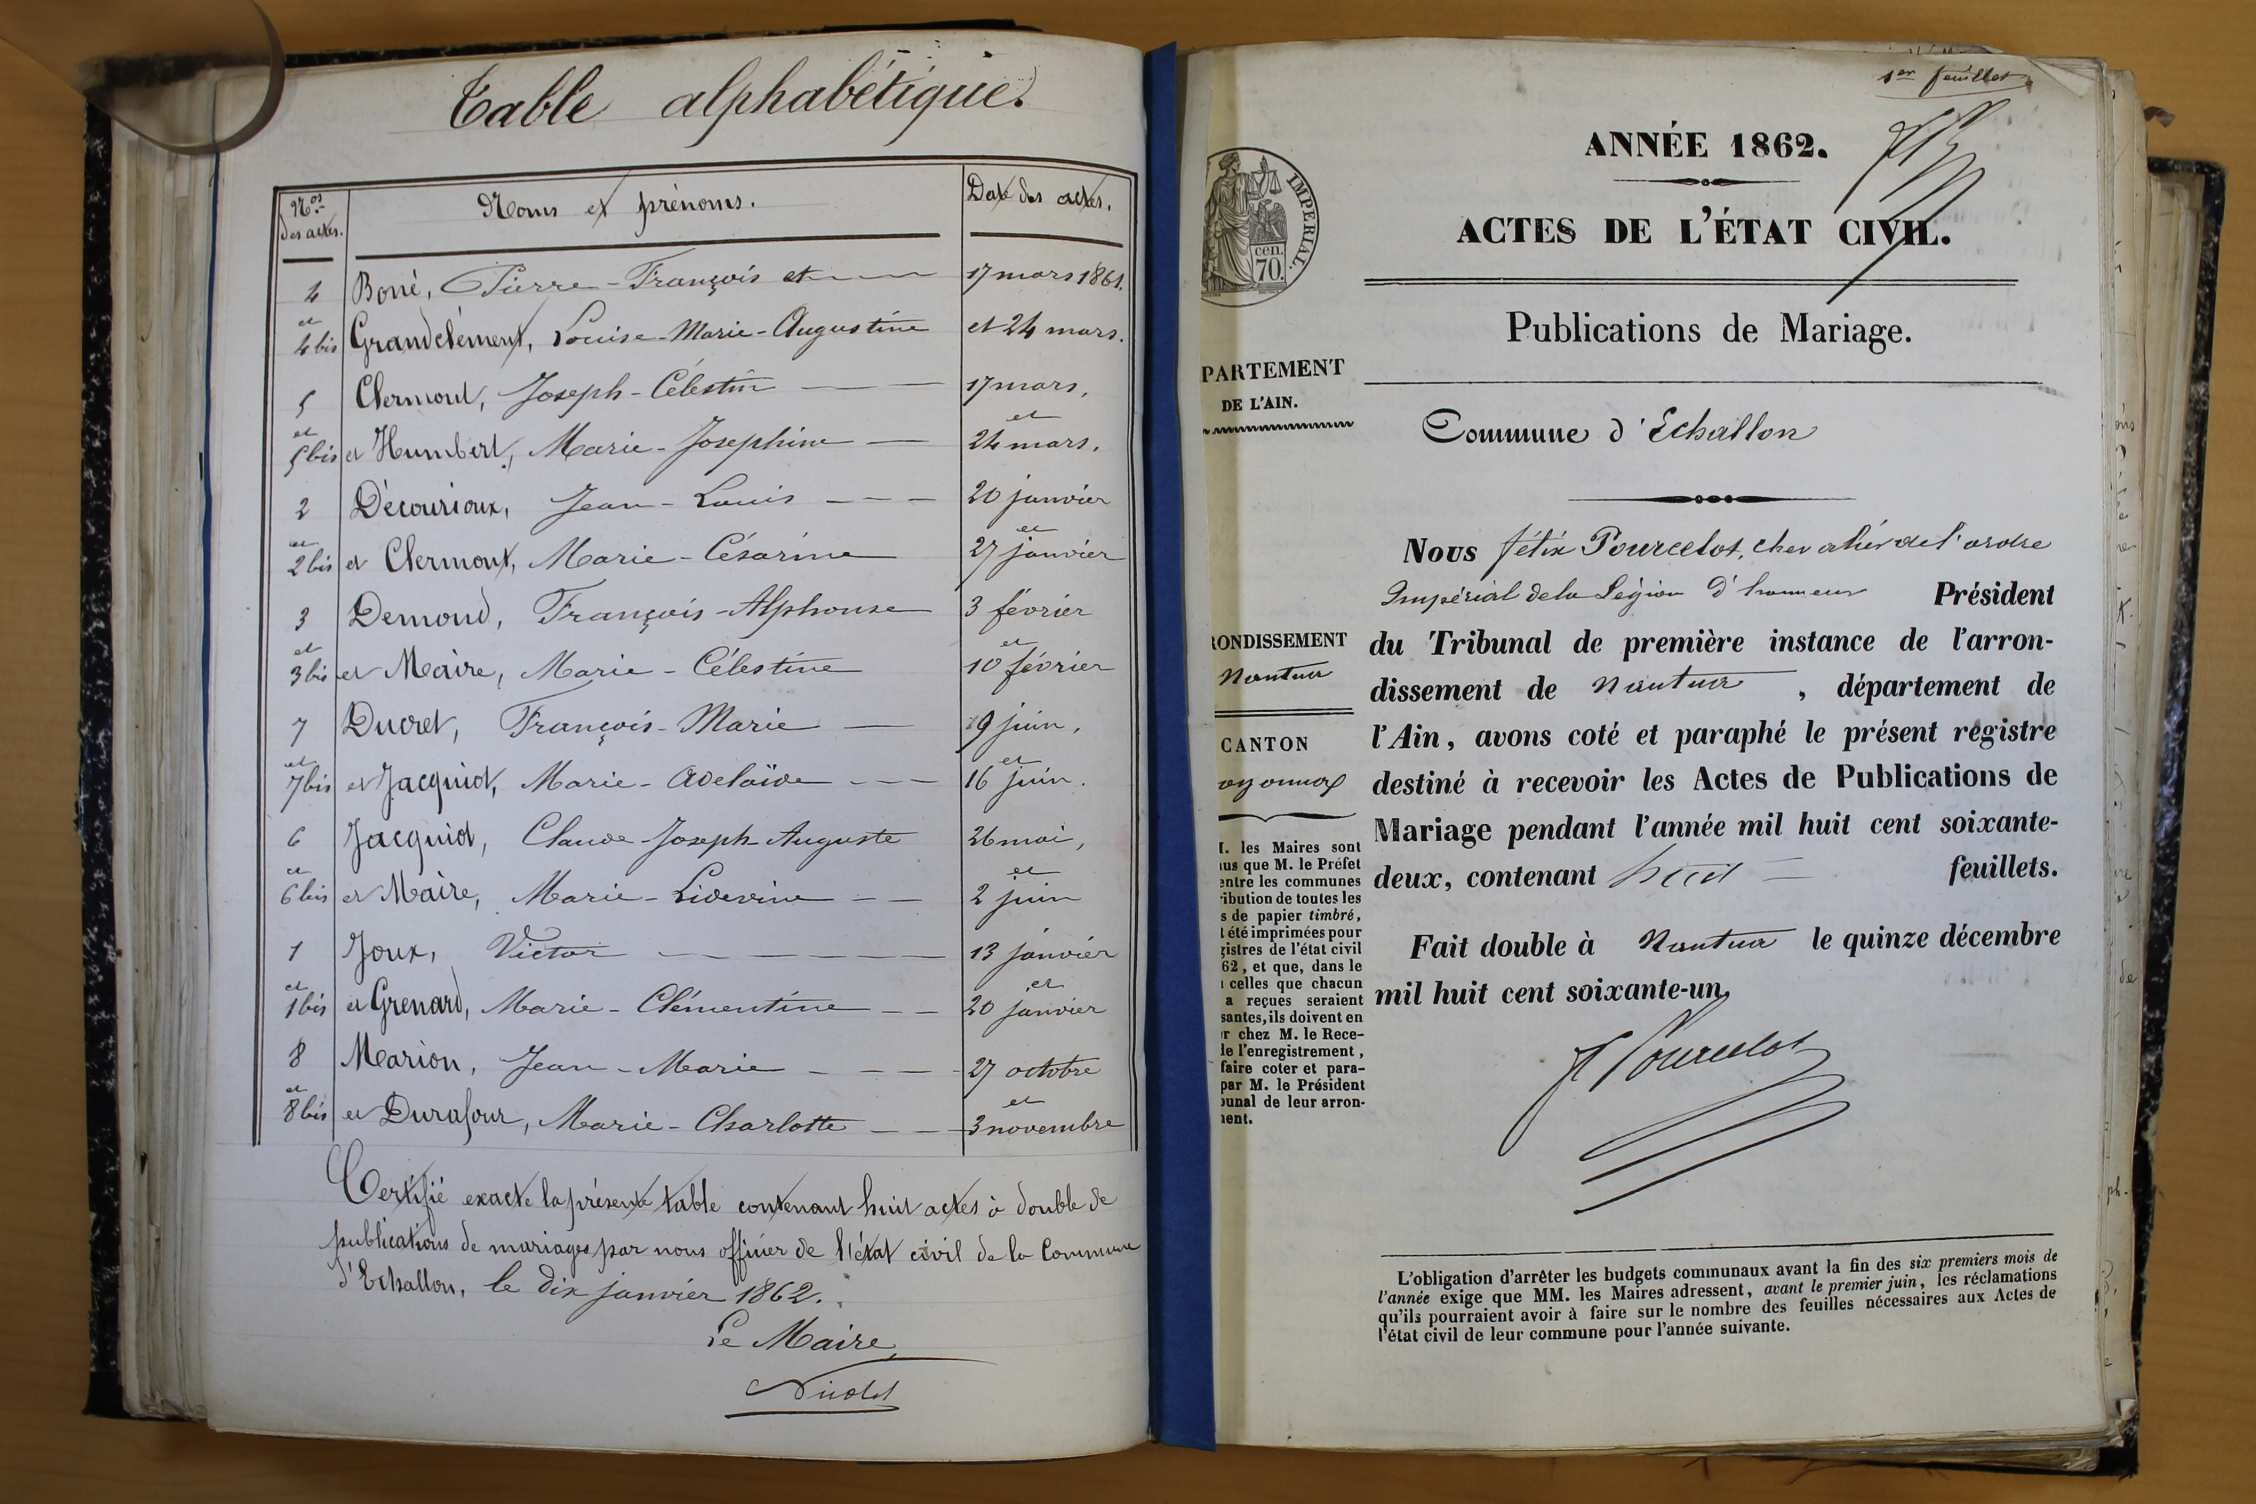 Table alphabétique.
Nos des actes. Noms et prénoms. Date des actes.
4 Boné, Pierre-François et 17 mars 1861.
et 4 bis Grandclément, Louise-Marie-Augustine et 24 mars.
5 Clermont, Joseph-Célestin 17 mars,
et 5 bis et Humbert, Marie-Josephine et 24 mars.
2 Décourioux, Jean-Louis 20 janvier
et 2 bis et Clermont, Marie-Césarine et 27 janvier
3 Demond, François-Alphonse 3 février
et 3 bis et Maire, Marie-Célestine et 10 février
7 Ducret, François-Marie 9 juin,
et 7 bis et Jacquiot, Marie-Adelaïde et 16 juin.
6 Jacquiot, Claude-Joseph-Auguste 26 mai,
et 6 bis et Maire, Marie-Lidevine et 2 juin
1 Joux, Victor 13 janvier
et 1 bis et Grenard, Marie-Clémentine et 20 janvier
8 Marion, Jean-Marie 27 octobre
et 8 bis et Durafour, Marie-Charlotte et 3 novembre
Certifié exacte la présente table contenant huit actes à double de
publications de mariages par nous officier de l'état civil de la Commune
d'Echallon, le dix janvier 1862.
Le Maire,
1er feuillet
ANNÉE 1862.
ACTES DE L'ÉTAT CIVIL.
IMPERIAL.
cen.
70.
Publications de Mariage.
PARTEMENT
DE L'AIN.
Commune d'Echallon
Nous Félix Pourcelot, chevalier de l'ordre
Impérial de la Légion d'honneur Président
du Tribunal de première instance de l'arron-
dissement de Nantua, département de
l'Ain, avons coté et paraphé le présent régistre
destiné à recevoir les Actes de Publications de
Mariage pendant l'année mil huit cent soixante-
deux, contenant huit feuillets.
Fait double à Nantua le quinze décembre
mil huit cent soixante-un,
F Pourcelot
RONDISSEMENT
Nantua
CANTON
oyonnax
M. les Maires sont
us que M. le Préfet
entre les communes
ribution de toutes les
s de papier timbré,
t été imprimées pour
gistres de l'état civil
62, et que, dans le
celles que chacun
a reçues seraient
santes, ils doivent en
r chez M. le Rece-
de l'enregistrement,
faire coter et para-
par M. le Président
bunal de leur arron-
ment.
L'obligation d'arrêter les budgets communaux avant la fin des six premiers mois de
l'année exige que MM. les Maires adressent, avant le premier juin, les réclamations
qu'ils pourraient avoir à faire sur le nombre des feuilles nécessaires aux Actes de
l'état civil de leur commune pour l'année suivante.